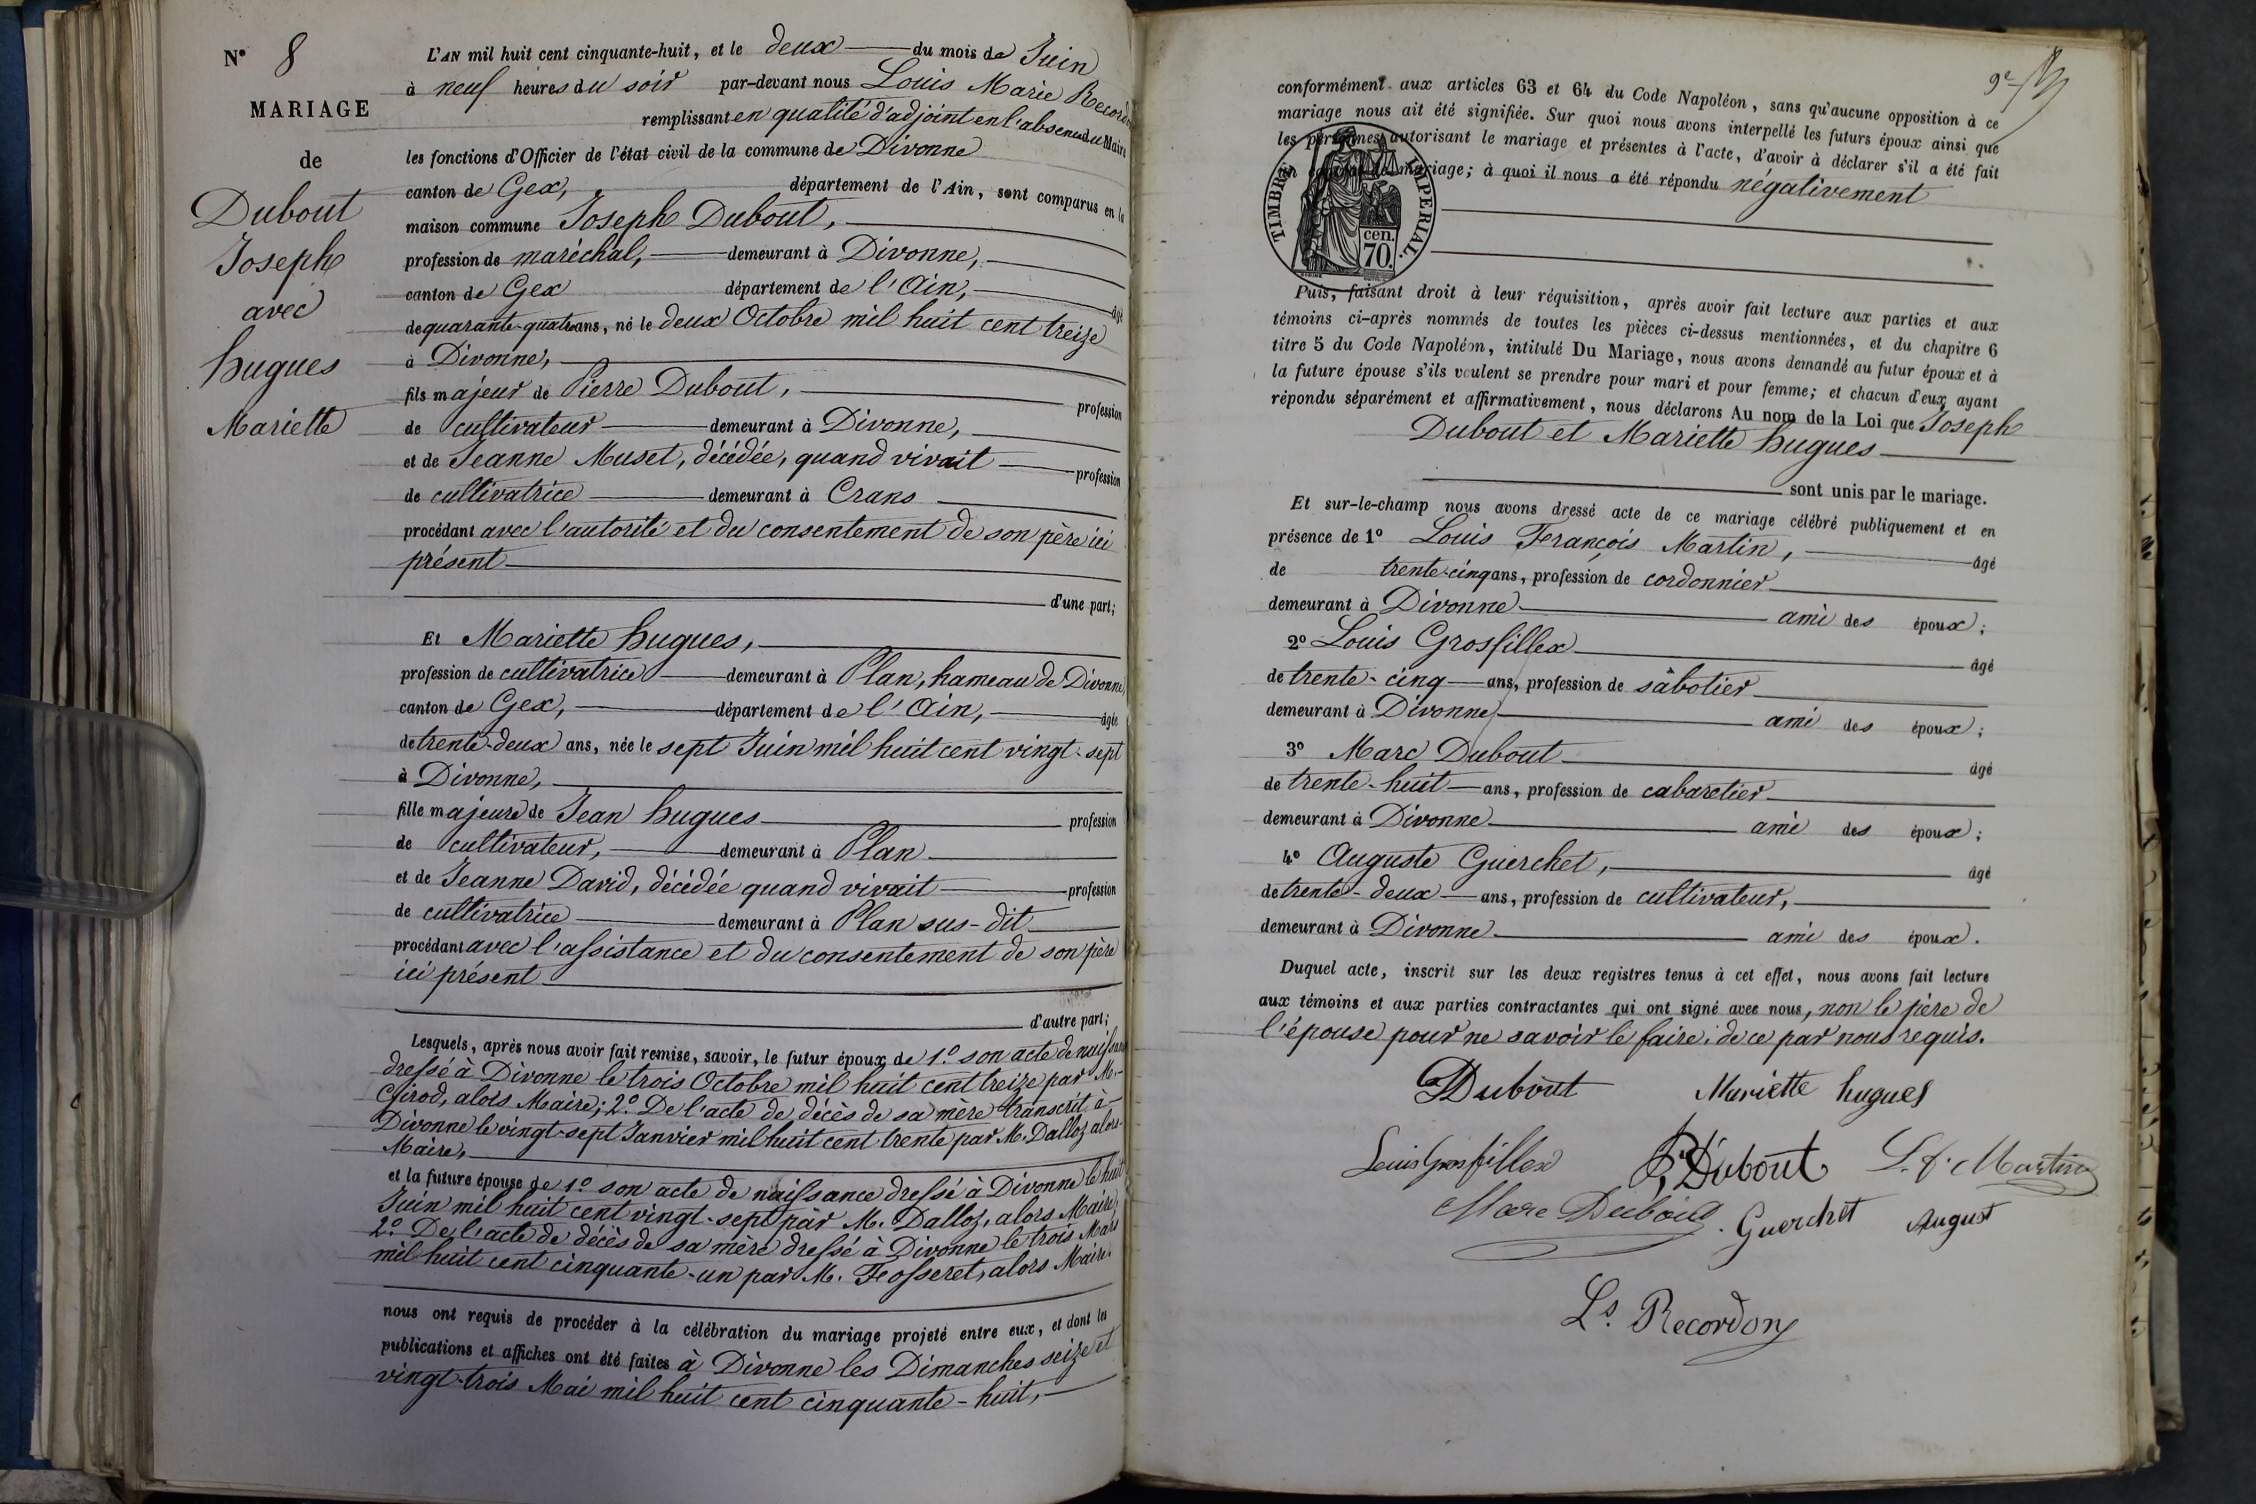 N° 8
MARIAGE
de
Dubout
Joseph
avec
hugues
Mariette
L'AN mil huit cent cinquante-huit, et le deux du mois de Juin
à neuf heures du soir par-devant nous Louis Marie Recordon
remplissant en qualité d'adjoint en l'absence du Maire
les fonctions d'Officier de l'état civil de la commune de Divonne
canton de Gex, département de l'Ain, sont comparus en la
maison commune Joseph Dubout,
profession de maréchal, demeurant à Divonne,
canton de Gex département de l'Ain, âgé
de quarante-quatre ans, né le deux Octobre mil huit cent treize
à Divonne,
fils majeur de Pierre Dubout, profession
de cultivateur demeurant à Divonne,
et de Jeanne Muset, décédée, quand vivait profession
de cultivatrice demeurant à Crans
procédant avec l'autorité et du consentement de son père ici
présent
d'une part;
Et Mariette hugues,
profession de cultivatrice demeurant à Plan, hameau de Divonne,
canton de Gex, département de l'Ain, âgée
de trente-deux ans, née le sept Juin mil huit cent vingt-sept
à Divonne,
fille majeure de Jean hugues profession
de cultivateur, demeurant à Plan
et de Jeanne David, décédée quand vivait profession
de cultivatrice demeurant à Plan sus-dit
procédant avec l'assistance et du consentement de son père
ici présent
d'autre part;
Lesquels, après nous avoir fait remise, savoir, le futur époux de 1° son acte de naissance
dressé à Divonne le trois Octobre mil huit cent treize par M.
Girod, alors Maire; 2° De l'acte de décès de sa mère transcrit à
Divonne le vingt-sept Janvier mil huit cent trente par M. Dalloz alors
Maire,
et la future épouse de 1° son acte de naissance dressé à Divonne le huit
Juin mil huit cent vingt-sept par M. Dalloz, alors Maire;
2° De l'acte de décès de sa mère dressé à Divonne le trois Mars
mil huit cent cinquante-un par M. Fosseret, alors Maire
nous ont requis de procéder à la célébration du mariage projeté entre eux, et dont les
publications et affiches ont été faites à Divonne les Dimanches seize et
vingt-trois Mai mil huit cent cinquante-huit,
conformément aux articles 63 et 64 du Code Napoléon, sans qu'aucune opposition à ce
mariage nous ait été signifiée. Sur quoi nous avons interpellé les futurs époux ainsi que
les personnes autorisant le mariage et présentes à l'acte, d'avoir à déclarer s'il a été fait
un contrat de mariage; à quoi il nous a été répondu négativement
TIMBRE IMPERIAL.
cen.
70.
Puis, faisant droit à leur réquisition, après avoir fait lecture aux parties et aux
témoins ci-après nommés de toutes les pièces ci-dessus mentionnées, et du chapitre 6
titre 5 du Code Napoléon, intitulé Du Mariage, nous avons demandé au futur époux et à
la future épouse s'ils veulent se prendre pour mari et pour femme; et chacun d'eux ayant
répondu séparément et affirmativement, nous déclarons Au nom de la Loi que Joseph
Dubout et Mariette hugues
sont unis par le mariage.
Et sur-le-champ nous avons dressé acte de ce mariage célébré publiquement et en
présence de 1° Louis François Martin, âgé
de trente-cinq ans, profession de cordonnier
demeurant à Divonne ami des époux;
2° Louis Grosfillex âgé
de trente-cinq ans, profession de sâbotier
demeurant à Divonne ami des époux;
3° Marc Dubout âgé
de trente-huit ans, profession de cabaretier
demeurant à Divonne ami des époux;
4° Auguste Guerchet, âgé
de trente-deux ans, profession de cultivateur,
demeurant à Divonne ami des époux.
Duquel acte, inscrit sur les deux registres tenus à cet effet, nous avons fait lecture
aux témoins et aux parties contractantes qui ont signé avec nous, non le père de
l'épouse pour ne savoir le faire de ce par nous requis.
Dubout Mariette hugues
Louis Grosfillex Dubout L. f. Martin
Marc Dubout Guerchet August
Ls. Recordon